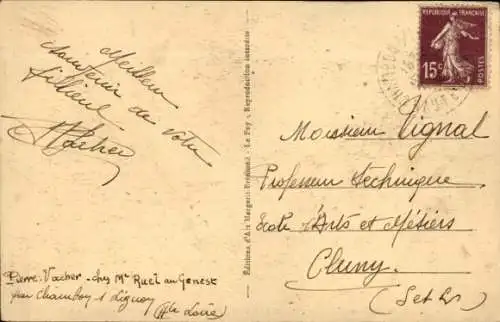 Meilleur
souvenir de votre
filleul
PVacher
Pierre Vacher - chez Mr Ruel au Genest
par Chambon s Lignon
(Hte Loire)
Editions d'Art Margerit-Brémond - Le Puy - Reproduction interdite
REPUBLIQUE FRANÇAISE
15c
POSTES
Monsieur Vignal
Professeur technique
Ecole d'Arts et Métiers
Cluny
(S et L)